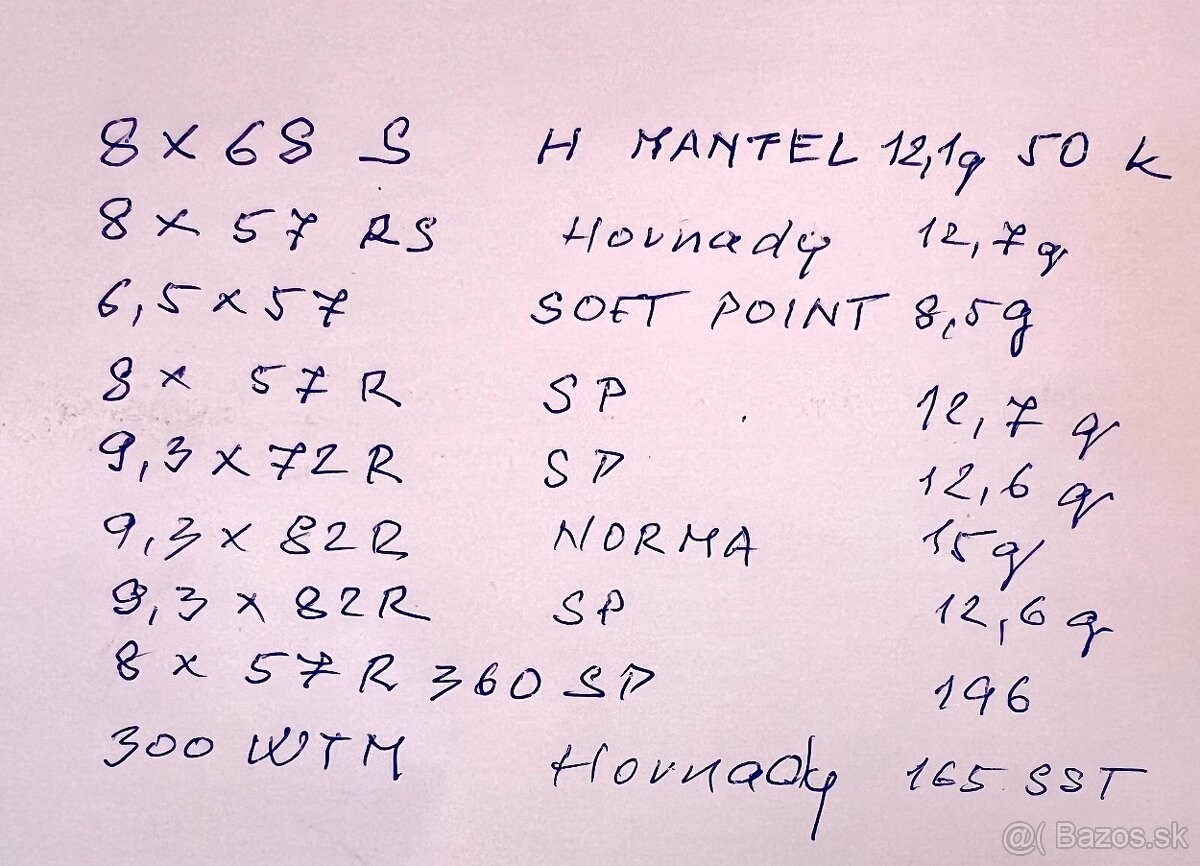 8 x 68 S H MANTEL 12,1g 50 k
8 x 57 RS Hornady 12,7g
6,5 x 57 SOFT POINT 8,5g
8 x 57 R SP 12,7 g
9,3 x 72 R SP 12,6 g
9,3 x 82R NORMA 15g
9,3 x 82R SP 12,6 g
8 x 57 R 360 SP 196
300 WTM Hornady 165 SST
@( Bazos.sk